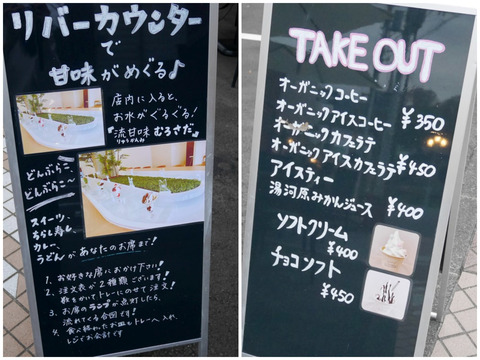 リバーカウンター
で
甘味がめぐる♪
店内に入ると、
お水がぐるぐる!
"流甘味 むささだ"
りゅうかんみ
どんぶらこ、
どんぶらこ〜
スイーツ、
ちらし寿し、
カレー、
うどんが あなたのお席まで!
1. お好きな席におかけ下さい!
2. 注文表が2種類ございます!
数をかいてトレーにのせて注文!
3. お席のランプが点灯したら、
流れてくる合図です!
4. 食べ終わったお皿もトレーへ入れ、
レジでお会計です!
TAKE OUT
オーガニックコーヒー
オーガニックアイスコーヒー
¥350
オーガニックカフェラテ
オーガニックアイスカフェラテ
¥450
アイスティー
湯河原みかんジュース
¥400
ソフトクリーム
¥400
チョコソフト
¥450